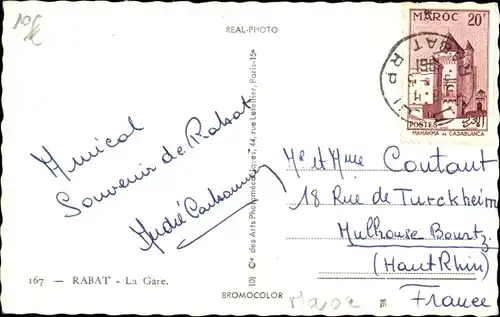 10€
REAL-PHOTO
Amical
Souvenir de Rabat
André
167 — RABAT - La Gare.
101 Cie des Arts Photomécaniques, 44, rue Letellier, Paris-15e
BROMOCOLOR
MAROC 20F
RABAT RP
POSTES
MAHAKMA DE CASABLANCA
Mr et Mme Coutant
18 Rue de Turckheim
Mulhouse Bourtz
(Haut Rhin)
France
Maroc